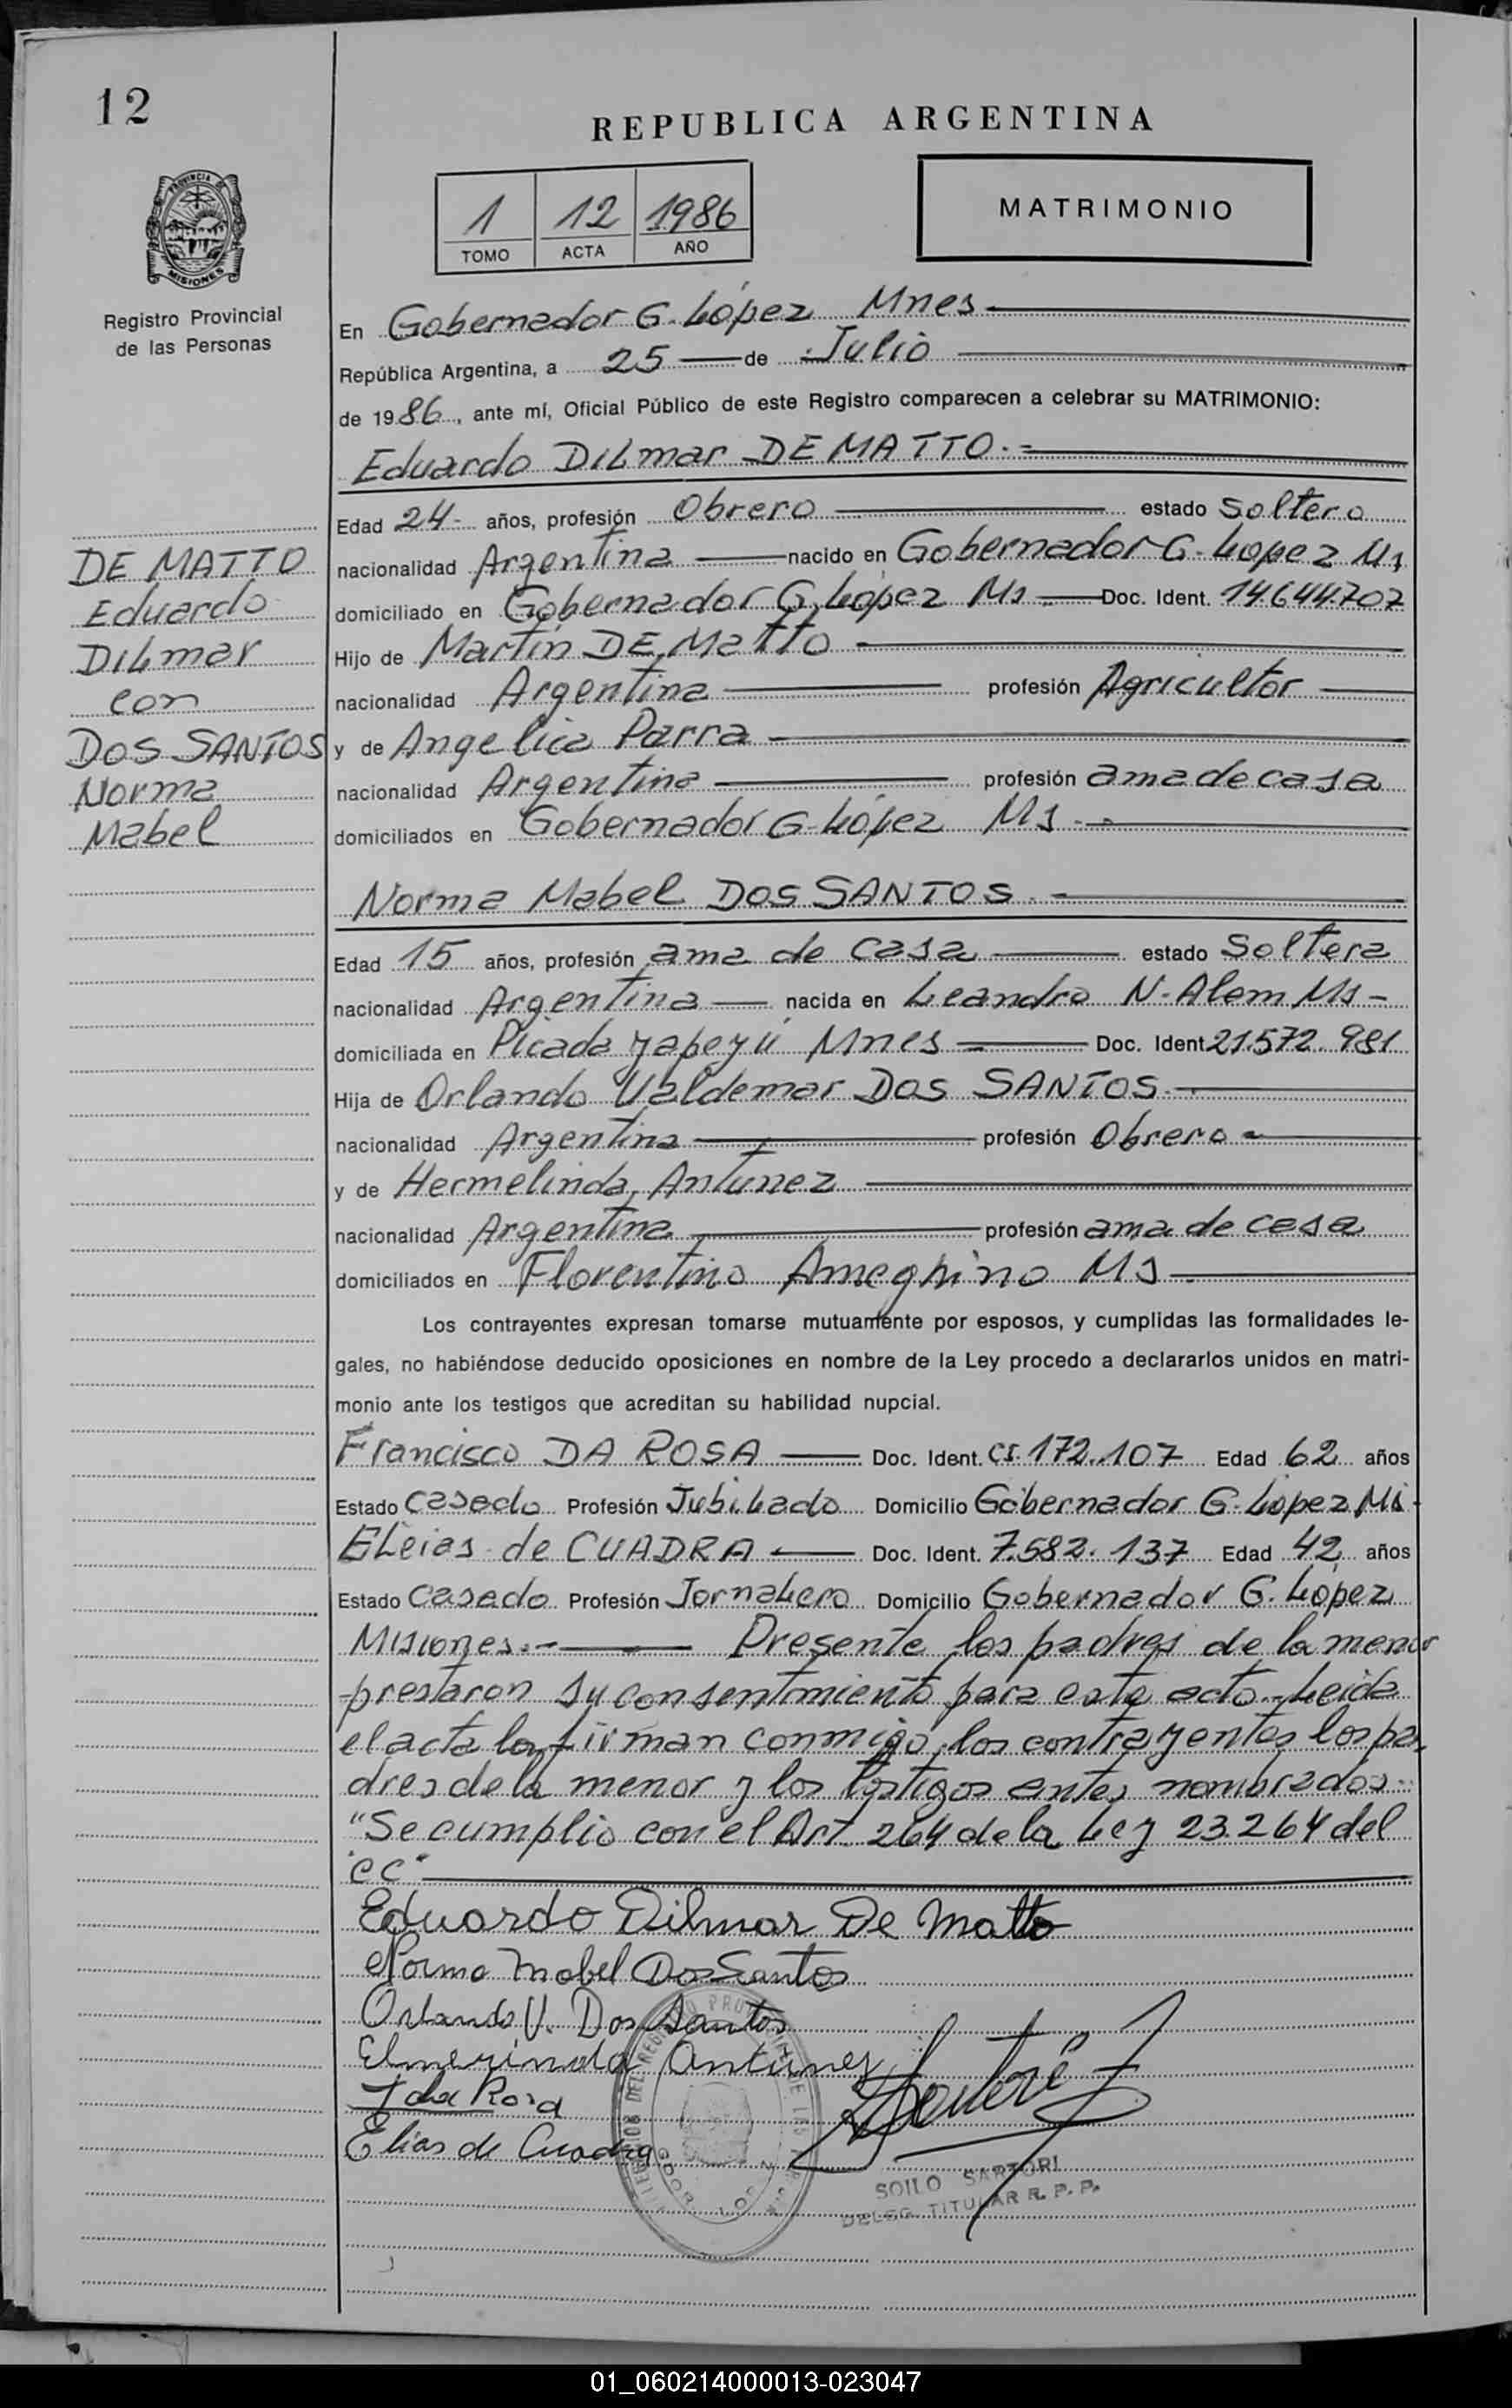 12
REPUBLICA ARGENTINA
1 12 1986
TOMO ACTA AÑO
MATRIMONIO
PROVINCIA DE
MISIONES
Registro Provincial
de las Personas
En Gobernador G. López Mnes
República Argentina, a 25 de Julio
de 1986, ante mí, Oficial Público de este Registro comparecen a celebrar su MATRIMONIO:
Eduardo DILmar DE MATTO.=
Edad 24- años, profesión Obrero estado Soltero
nacionalidad Argentina nacido en Gobernador G. Lopez Ms
domiciliado en Gobernador G. López Ms. Doc. Ident. 14.644.707
Hijo de Martín DE MATTO
nacionalidad Argentina profesión Agricultor
y de Angelica Parra
nacionalidad Argentina profesión ama de casa
domiciliados en Gobernador G. López Ms.
DE MATTO
Eduardo
DILmar
con
DOS SANTOS
Norma
Mabel
Norma Mabel DOS SANTOS.
Edad 15 años, profesión ama de casa estado Soltera
nacionalidad Argentina nacida en Leandro N. Alem Ms-
domiciliada en Picada yapeyú Mnes Doc. Ident 21.572.981
Hija de Orlando Valdemar DOS SANTOS.
nacionalidad Argentina profesión Obrero
y de Hermelinda Antunez
nacionalidad Argentina profesión ama de casa
domiciliados en Florentino Ameghino Ms
Los contrayentes expresan tomarse mutuamente por esposos, y cumplidas las formalidades le-
gales, no habiéndose deducido oposiciones en nombre de la Ley procedo a declararlos unidos en matri-
monio ante los testigos que acreditan su habilidad nupcial.
Francisco DA ROSA Doc. Ident. CI. 172.107 Edad 62 años
Estado Casado Profesión Jubilado Domicilio Gobernador G. Lopez Ms.
ELeias de CUADRA Doc. Ident. 7.582.137 Edad 42 años
Estado Casado Profesión Jornalero Domicilio Gobernador G. López
Misiones.- Presente los padres de la menor
prestaron su consentimiento para este acto.- Leida
el acta la firman conmigo, los contrayentes los pa-
dres de la menor y los testigos antes nombrados.-
"Se cumplio con el Art. 264 de la Ley 23.264 del
CC"
Eduardo Dilmar De Matto
Norma Mabel Dos Santos
Orlando V. Dos Santos
Elmerinda Antunez
F da Rosa
Elias de Cuadra
SOILO SARTORI
DELEG. TITULAR R. P. P.
01_060214000013-023047